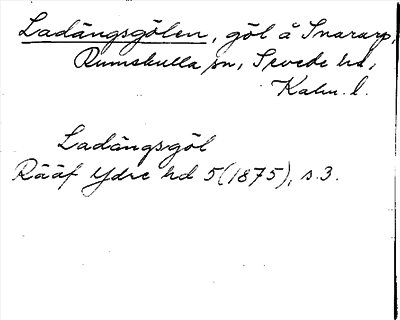 Ladängsgölen, göl å Snararp,
Rumskulla sn, Sevede hd,
Kalm. l.
Ladängsgöl
Rääf Ydre hd 5(1875), s.3.